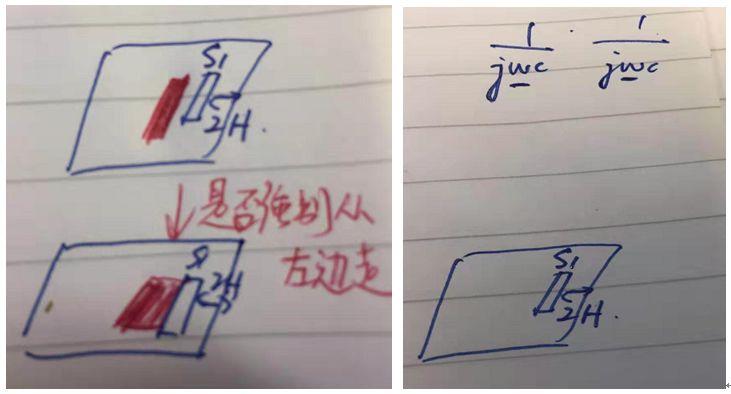 S1
2H.
是否强制从
左边走
S1
2H
1/jwc · 1/jwc
S1
2H.